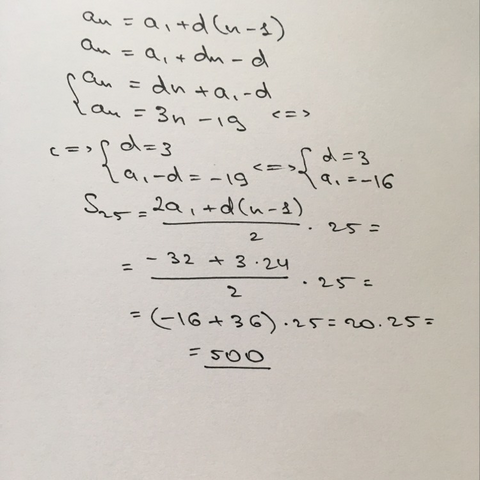 aₙ = a₁ + d(n-1)
aₙ = a₁ + dn - d
{ aₙ = dn + a₁ - d
{ aₙ = 3n - 19 <=>
<=> { d = 3 <=> { d = 3
{ a₁ - d = -19 { a₁ = -16
S₂₅ = (2a₁ + d(n-1))/2 · 25 =
= (-32 + 3·24)/2 · 25 =
= (-16 + 36) · 25 = 20 · 25 =
= 500